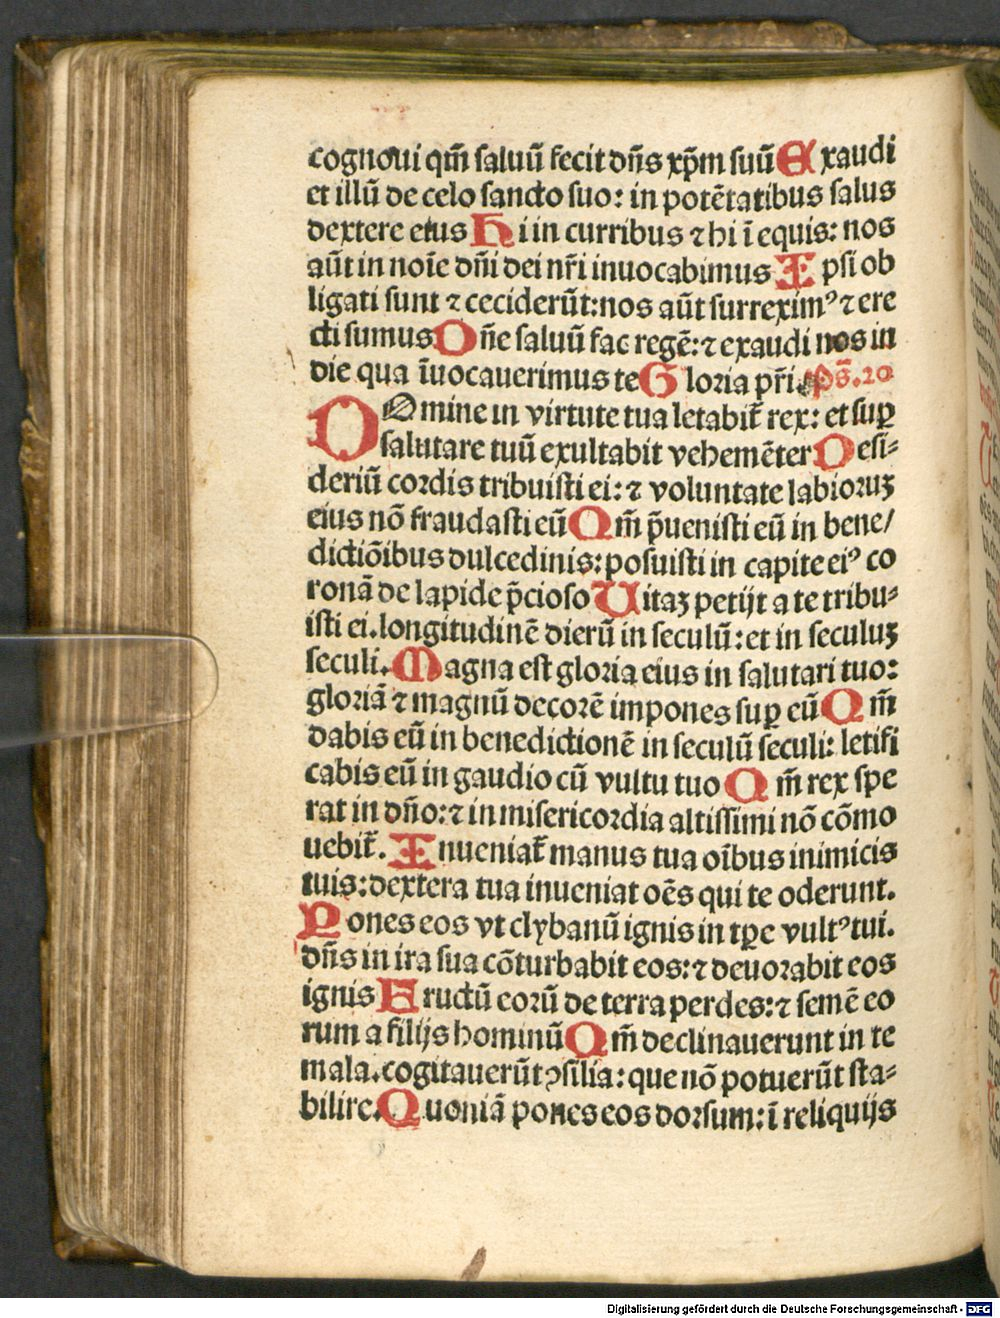 cognoui qm̄ saluū fecit dn̄s xp̄m suū Exaudi
et illū de celo sancto suo: in potētatibus salus
dextere eius Hi in curribus ⁊ hi ī equis: nos
aūt in noīe dn̄i dei nr̄i inuocabimus Ipsi ob
ligati sunt ⁊ ceciderūt: nos aūt surreximꝰ ⁊ ere
cti sumus Dn̄e saluū fac regē: ⁊ exaudi nos in
die qua īuocauerimus te Gloria pr̄i. Ps̄. 20
DOmine in virtute tua letabit̄ rex: et suꝑ
salutare tuū exultabit vehemēter Desi⸗
deriū cordis tribuisti ei: ⁊ voluntate labioruꝫ
eius nō fraudasti eū Qm̄ p̄uenisti eū in bene/
dictiōibus dulcedinis: posuisti in capite eiꝰ co
ronā de lapide p̄cioso Uitaꝫ petijt a te tribu⸗
isti ei. longitudinē dierū in seculū: et in seculuꝫ
seculi. Magna est gloria eius in salutari tuo:
gloriā ⁊ magnū decorē impones suꝑ eū Qm̄
dabis eū in benedictionē in seculū seculi: letifi
cabis eū in gaudio cū vultu tuo Qm̄ rex spe
rat in dn̄o: ⁊ in misericordia altissimi nō cōmo
uebit̄. Inueniat̄ manus tua oībus inimicis
tuis: dextera tua inueniat oēs qui te oderunt.
Pones eos vt clybanū ignis in tꝑe vultꝰ tui.
dn̄s in ira sua cōturbabit eos: ⁊ deuorabit eos
ignis Fructū eorū de terra perdes: ⁊ semē eo
rum a filijs hominū Qm̄ declinauerunt in te
mala. cogitauerūt ꝯsilia: que nō potuerūt sta⸗
bilire. Quoniā pones eos dorsum: ī reliquijs
Digitalisierung gefördert durch die Deutsche Forschungsgemeinschaft - DFG